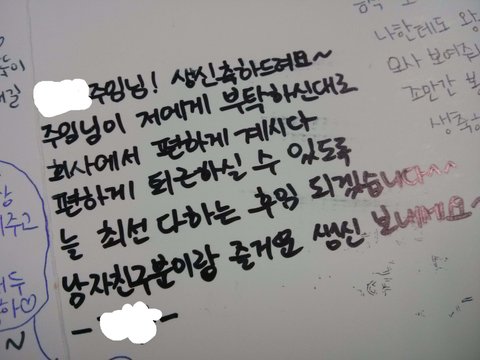 주임님! 생신축하드려요~
주임님이 저에게 부탁하신대로
회사에서 편하게 계시다
편하게 퇴근하실 수 있도록
늘 최선 다하는 후임 되겠습니다^^
남자친구분이랑 즐거운 생신 보내세요~
나한테도
조만간